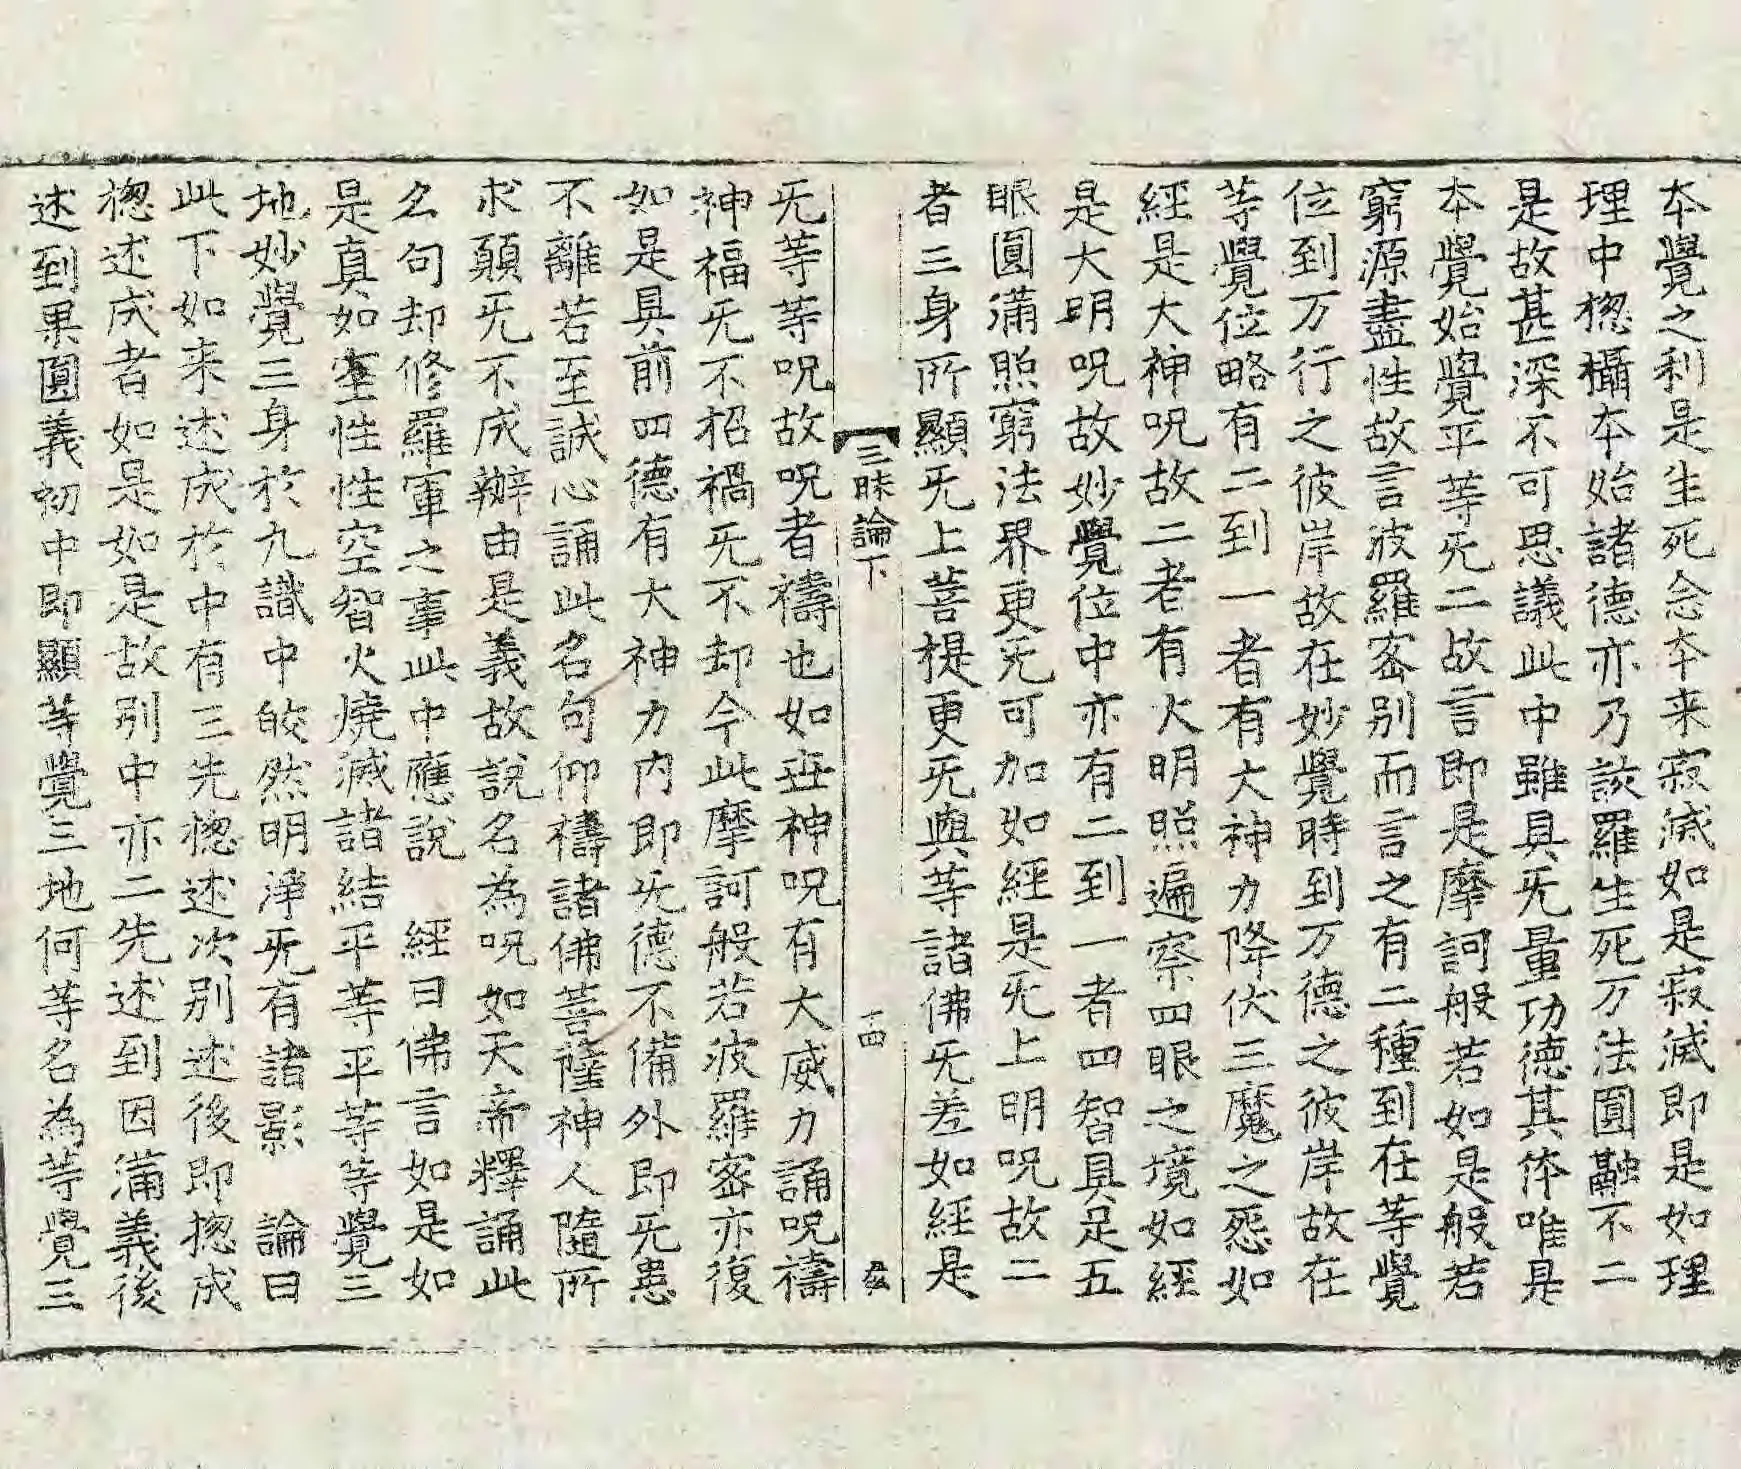 本覺之利是生死念本来寂滅如是寂滅即是如理
理中揔攝本始諸德亦乃該羅生死万法圓融不二
是故甚深不可思議此中雖具旡量功德其体唯是
本覺始覺平等旡二故言即是摩訶般若如是般若
窮源盡性故言波羅蜜別而言之有二種到在等覺
位到万行之彼岸故在妙覺時到万德之彼岸故在
等覺位略有二到一者有大神力降伏三魔之怨如
經是大神呪故二者有火明照遍察四眼之境如經
是大明呪故妙覺位中亦有二到一者四智具足五
眼圓滿照窮法界更旡可加如經是旡上明呪故二
者三身所顯旡上菩提更旡與等諸佛旡差如經是
三昧論下 十四
旡等等呪故呪者禱也如世神呪有大威力誦呪禱
神福旡不招禍旡不却今此摩訶般若波羅蜜亦復
如是具前四德有大神力内即旡德不備外即旡患
不離若至誠心誦此名句仰禱諸佛菩薩神人隨所
求願旡不成辦由是義故說名為呪如天帝釋誦此
名句却修羅軍之事此中應說 經曰佛言如是如
是真如空性性空智火燒滅諸結平等平等等覺三
地妙覺三身於九識中皎然明淨旡有諸影 論曰
此下如来述成於中有三先揔述次別述後即揔成
揔述成者如是如是故別中亦二先述到因滿義後
述到果圓義初中即顯等覺三地何等名為等覺三